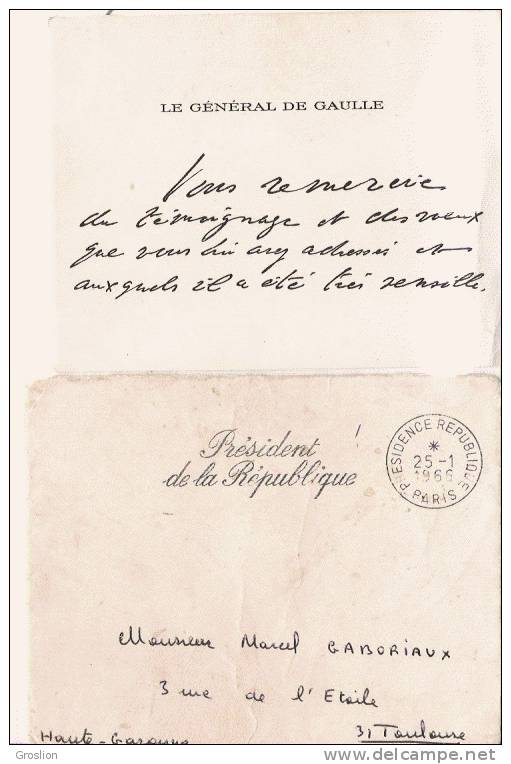 LE GÉNÉRAL DE GAULLE
Vous remercie
du témoignage et des vœux
que vous lui avez adressés et
auxquels il a été très sensible.
Président
de la République
PRESIDENCE REPUBLIQUE
25-1
1966
PARIS
Monsieur Marcel GABORIAUX
3 rue de l'Etoile
31 Toulouse
Haute-Garonne
Groslion
delcampe.net